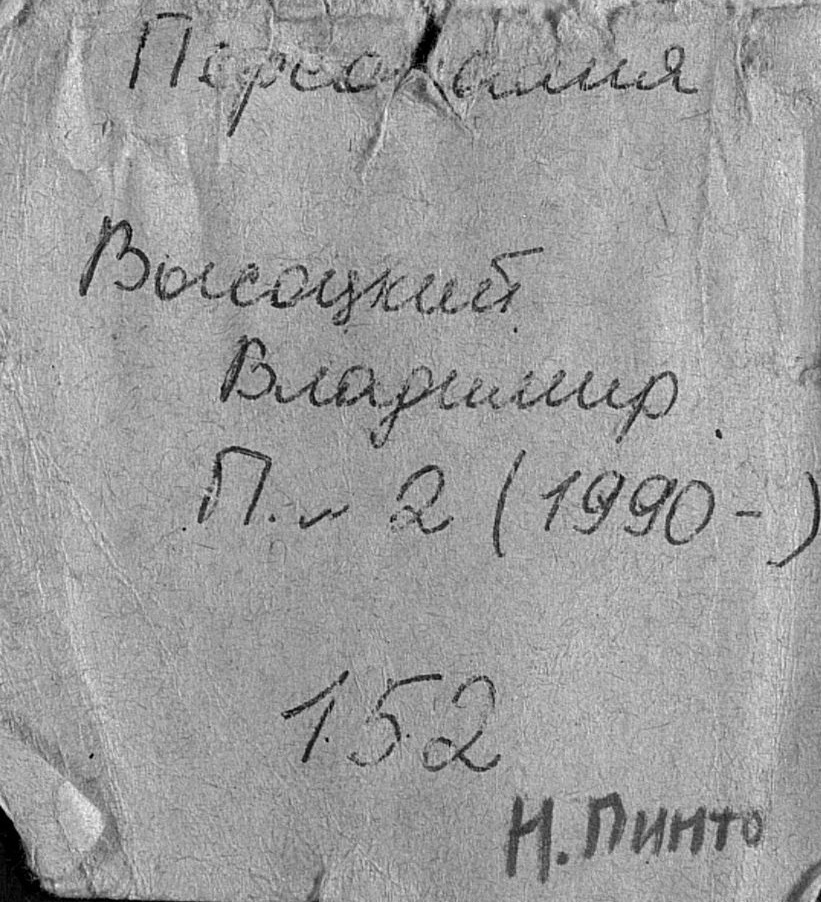 Персоналия
Высоцкий
Владимир.
П. 2 (1990- )
152
Н. Пинто